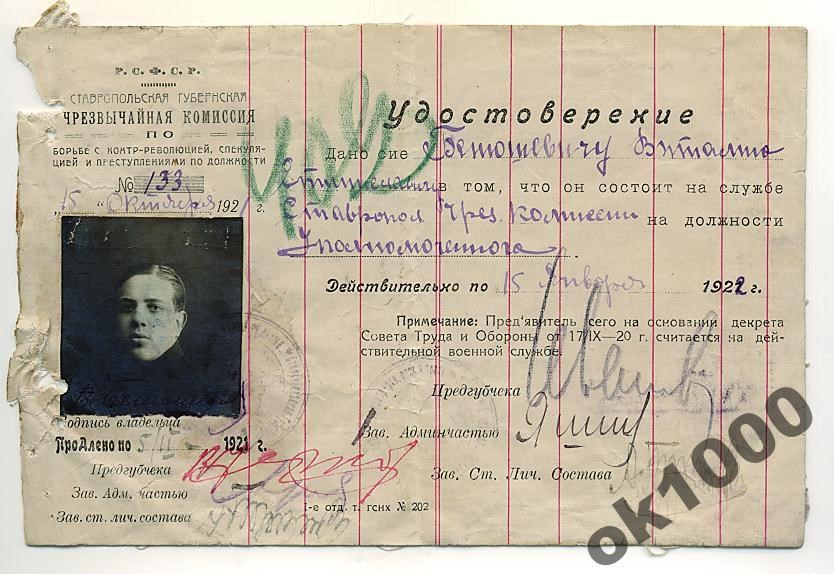 Р. С. Ф. С. Р.
СТАВРОПОЛЬСКАЯ ГУБЕРНСКАЯ
ЧРЕЗВЫЧАЙНАЯ КОМИССИЯ
ПО
БОРЬБЕ С КОНТР-РЕВОЛЮЦИЕЙ, СПЕКУЛЯ-
ЦИЕЙ И ПРЕСТУПЛЕНИЯМИ ПО ДОЛЖНОСТИ
№ 133
"15" Октября 1921 г.
Подпись владельца
Продлено по 5/II 192 г.
Предгубчека
Зав. Адм. частью
Зав. ст. лич. состава
Удостоверение
Дано сие Виталию
в том, что он состоит на службе
Ставропол Чрез. Комиссии на должности
Уполномоченного.
Действительно по 15 Января 1922 г.
Примечание: Пред'явитель сего на основании декрета
Совета Труда и Обороны от 17/IX—20 г. считается на дей-
ствительной военной службе.
Предгубчека Иванов
Зав. Админчастью
Зав. Ст. Лич. Состава
1-е отд. т. гснх № 202
ok1000